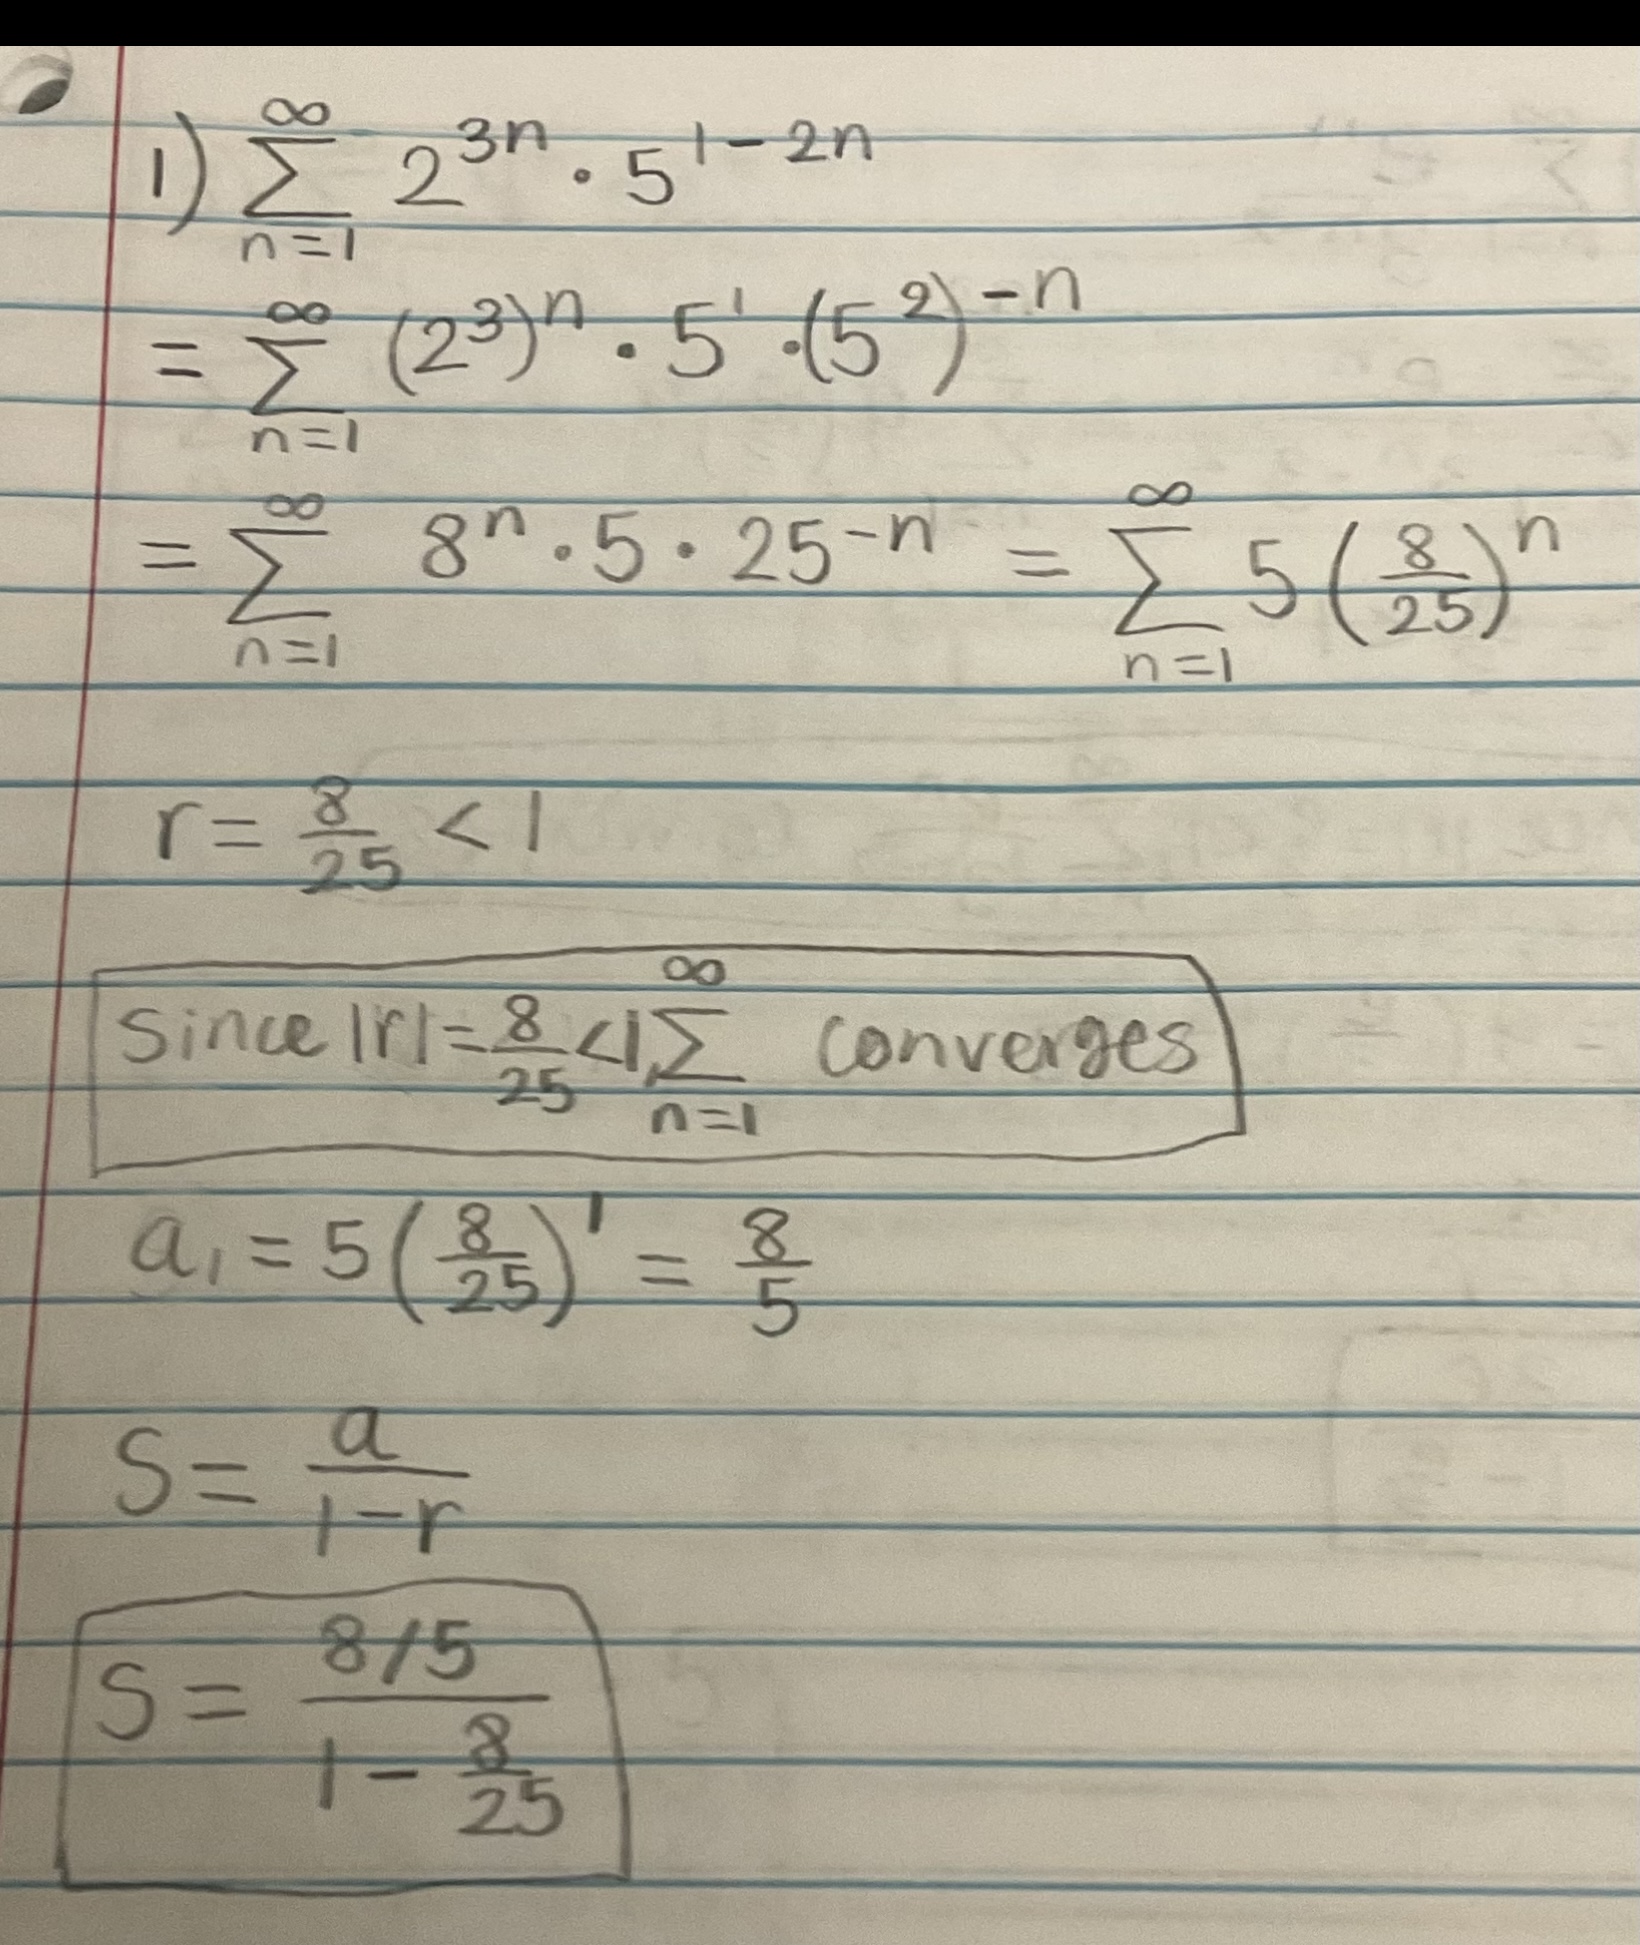 1) ∞∑n=1 2^{3n} · 5^{1-2n}
= ∞∑n=1 (2^3)^n · 5^1 · (5^2)^{-n}
= ∞∑n=1 8^n · 5 · 25^{-n} = ∞∑n=1 5(8/25)^n
r = 8/25 < 1
Since |r| = 8/25 < 1, ∞∑n=1 converges
a_1 = 5(8/25)^1 = 8/5
S = a/(1-r)
S = (8/5)/(1 - 8/25)